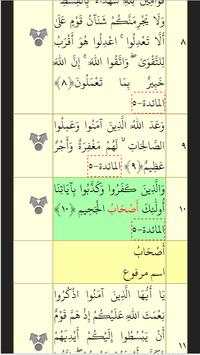 قوامين لله شهداء بالقسط
وَلَا يَجْرِمَنَّكُمْ شَنَآنُ قَوْمٍ عَلَىٰ
أَلَّا تَعْدِلُوا ۚ اعْدِلُوا هُوَ أَقْرَبُ
لِلتَّقْوَىٰ ۖ وَاتَّقُوا اللَّهَ ۚ إِنَّ اللَّهَ
خَبِيرٌ بِمَا تَعْمَلُونَ ﴿٨﴾
المائدة-٥
٨
وَعَدَ اللَّهُ الَّذِينَ آمَنُوا وَعَمِلُوا
الصَّالِحَاتِ ۙ لَهُمْ مَغْفِرَةٌ وَأَجْرٌ
عَظِيمٌ ﴿٩﴾ المائدة-٥
٩
وَالَّذِينَ كَفَرُوا وَكَذَّبُوا بِآيَاتِنَا
أُولَٰئِكَ أَصْحَابُ الْجَحِيمِ ﴿١٠﴾
المائدة-٥
١٠
أَصْحَابُ
اسم مرفوع
يَا أَيُّهَا الَّذِينَ آمَنُوا اذْكُرُوا
نِعْمَتَ اللَّهِ عَلَيْكُمْ إِذْ هَمَّ قَوْمٌ
أَنْ يَبْسُطُوا إِلَيْكُمْ أَيْدِيَهُمْ
١١